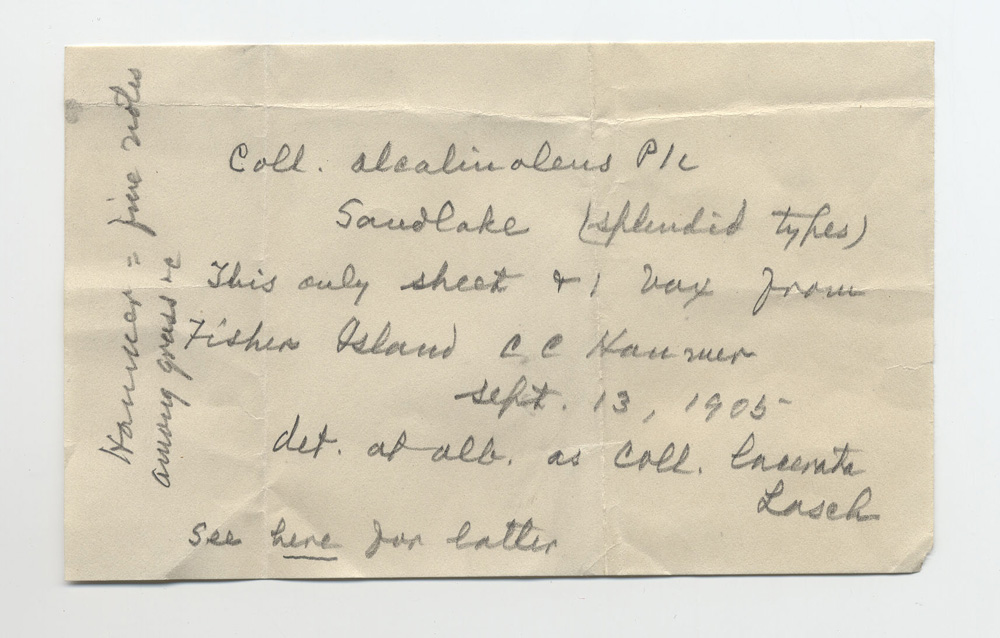 Coll. alcalinolens Pk
Sandlake (splendid types)
This only sheet & 1 box from
Fishers Island C C Hanmer
sept. 13, 1905
det. at alb. as Coll. lacerata
Lasch
see here for latter
Hanmer = fine notes
among grass &c